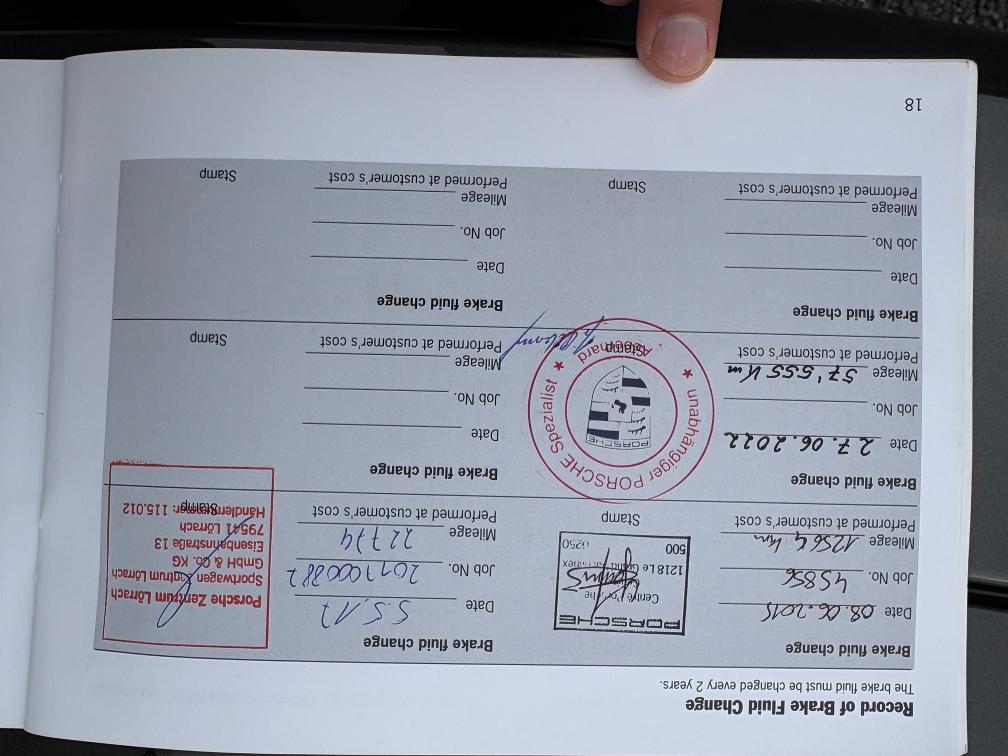 Record of Brake Fluid Change
The brake fluid must be changed every 2 years.
Brake fluid change
Date 08.06.2015
Job No. 45856
Mileage 12564 km
Performed at customer's cost
PORSCHE
Centre Porsche
1218 Le
500 6250
Stamp
Brake fluid change
Date 5.5.17
Job No. 2017000887
Mileage 22774
Performed at customer's cost
Porsche Zentrum Lörrach
Sportwagen Zentrum Lörrach
GmbH & Co. KG
Eisenbahnstraße 13
79541 Lörrach
Händlernummer: 115.012
Stamp
Brake fluid change
Date 27.06.2022
Job No.
Mileage 57'555 Km
Performed at customer's cost
unabhängiger PORSCHE Spezialist
PORSCHE
Stamp
Brake fluid change
Date
Job No.
Mileage
Performed at customer's cost
Stamp
Brake fluid change
Date
Job No.
Mileage
Performed at customer's cost
Stamp
Brake fluid change
Date
Job No.
Mileage
Performed at customer's cost
Stamp
18